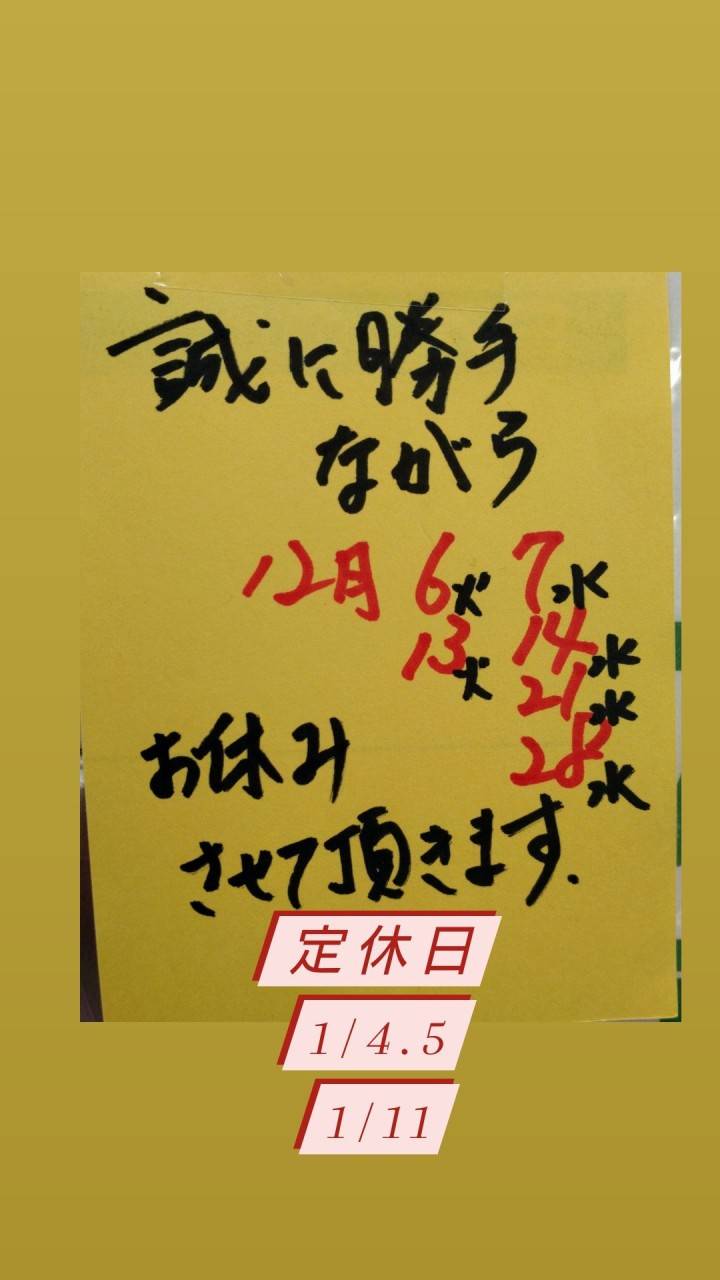 誠に勝手
ながら
12月 6火 7水
13火 14水
21水
28水
お休み
させて頂きます.
定休日
1/4.5
1/11